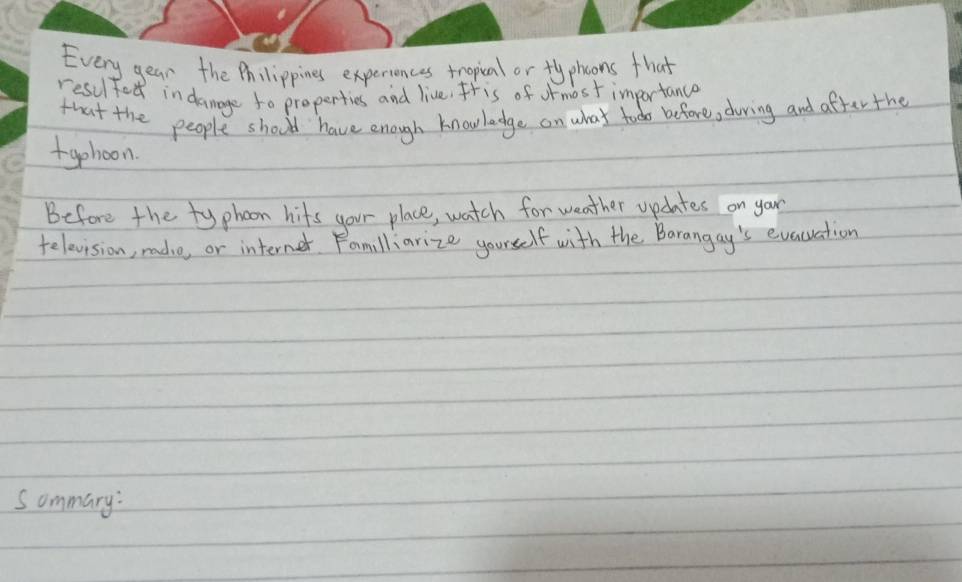 Every year the Philippines experiences tropical or typhoons that
resulted in damage to properties and live. It is of utmost importance
that the people should have enough knowledge on what todo before, during and after the
typhoon.
Before the typhoon hits your place, watch for weather updates on your
television, radio, or internet. Familliarize yourself with the Barangay's evacuation
Summary: